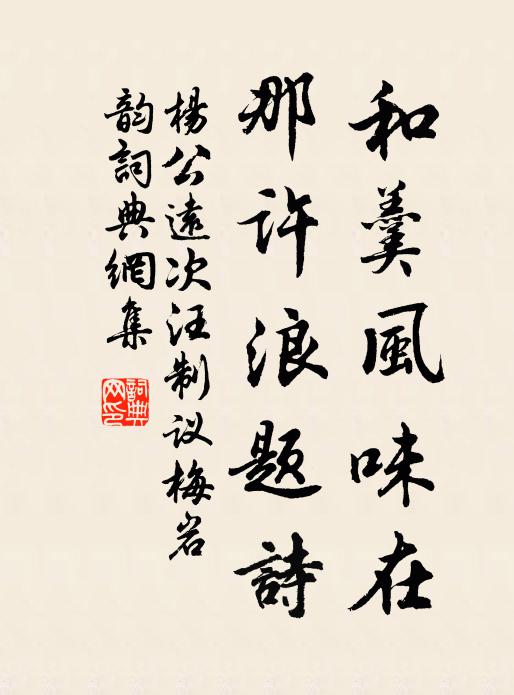 和羹風味在
那许浪题詩
楊公遠次汪制议梅岩
韵詞典網集
詞典網印